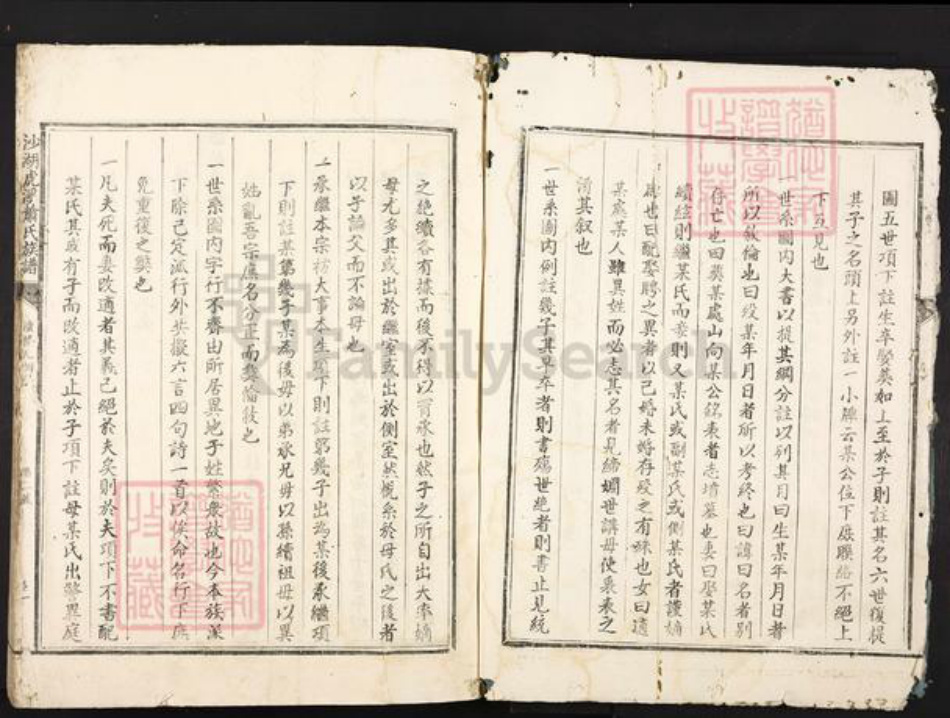 圖五世項下註生卒娶葬如上至於子則註其名六世復提
其子之名頭上另外註一小牌云某公位下庶聯絡不絕上
下互見也
一世系圖內大書以提其綱分註以列其目曰生某年月日者
所以敘倫也曰歿某年月日者所以考終也曰諱曰名者別
存亡也曰葬某處山向某公銘表者志墳墓也妻曰娶某氏
續絃則繼某氏而妾則又某氏或副某氏或側某氏者謹嫡
庶也曰配娶聘之異者以已婚未婚存歿之有殊也女曰適
某處某人雖異姓而必志其名者見締姻世講毋使泉表之
淆其叙也
一世系圖內例註幾子其早卒者則書殤世絕者則書止見統
之絕續各有據而後不得以冒承也然子之所自出大率嫡
母尤多其或出於繼室或出於側室然概系於母氏之後者
以子論父而不論母也
一承繼本宗祊大事本生項下則註第幾子出為某後承繼項
下則註某第幾子某為後毋以弟承兄毋以孫續祖毋以異
姓亂吾宗庶名分正而彝倫敘也
一世系圖內字行不齊由所居異地子姓繁衆故也今本族派
下除已定派行外共擬六言四句詩一首以俟命名行下庶
免重復之弊也
一凡夫死而妻改適者其義已絕於夫矣則於夫項下不書配
某氏其或有子而改適者止於子項下註母某氏出醮異庭
沙湖虎
蕭氏族譜
FamilySearch